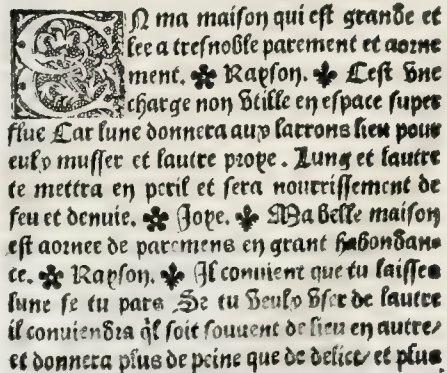 EN ma maiſon qui eſt grande et
lee a treſnoble parement et aorne
ment. ✽ Rayſon. ⚜ Ceſt vne
charge non vtille en eſpace ſuper
flue Car lune donnera aux larrons lieu pour
eulx muſſer et lautre prope. Lung et lautre
te mettra en peril et ſera nourriſſement de
feu et denuie. ✽ Joye. ⚜ Ma belle maiſon
eſt aornee de paremens en grant habondan
ce. ✽ Rayſon. ⚜ Il conuient que tu laiſſes
lune ſe tu pars Se tu veulx vſer de lautre
il conuiendra q̃l ſoit ſouuent de lieu en autre/
et donnera plus de peine que de delice/ et plus